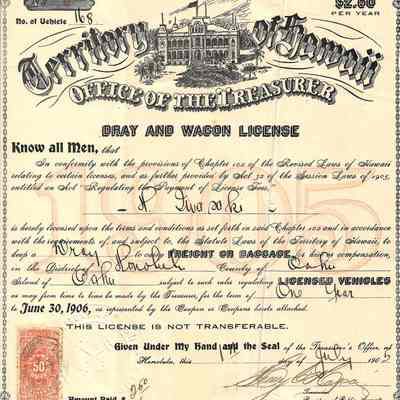 $2.00
PER YEAR
No. of Vehicle 168
Territory of Hawaii
OFFICE OF THE TREASURER
DRAY AND WAGON LICENSE
Know all Men, that
In conformity with the provisions of Chapter 102 of the Revised Laws of Hawaii
relating to certain licenses, and as further provided by Act 32 of the Session Laws of 1905,
entitled an Act Regulating the Payment of License Fees,
is hereby licensed upon the terms and conditions as set forth in said Chapter 102 and in accordance
with the requirements of, and subject, to the Statute Laws of the Territory of Hawaii, to
keep a Dray to carry FREIGHT OR BAGGAGE, as low on compensation,
in the District of Honolulu County of Oahu
Island of Oahu subject to such rules regulating LICENSED VEHICLES
as may from time to time be made by the Treasurer, for the term of One Year
to JUNE 30, 1906, as represented by the Coupon or Coupons hereto attached.
THIS LICENSE IS NOT TRANSFERABLE.
Given Under My Hand and the Seal of the Treasurer's Office at
Honolulu, this 1st day of July 1905
50
Amount Paid $